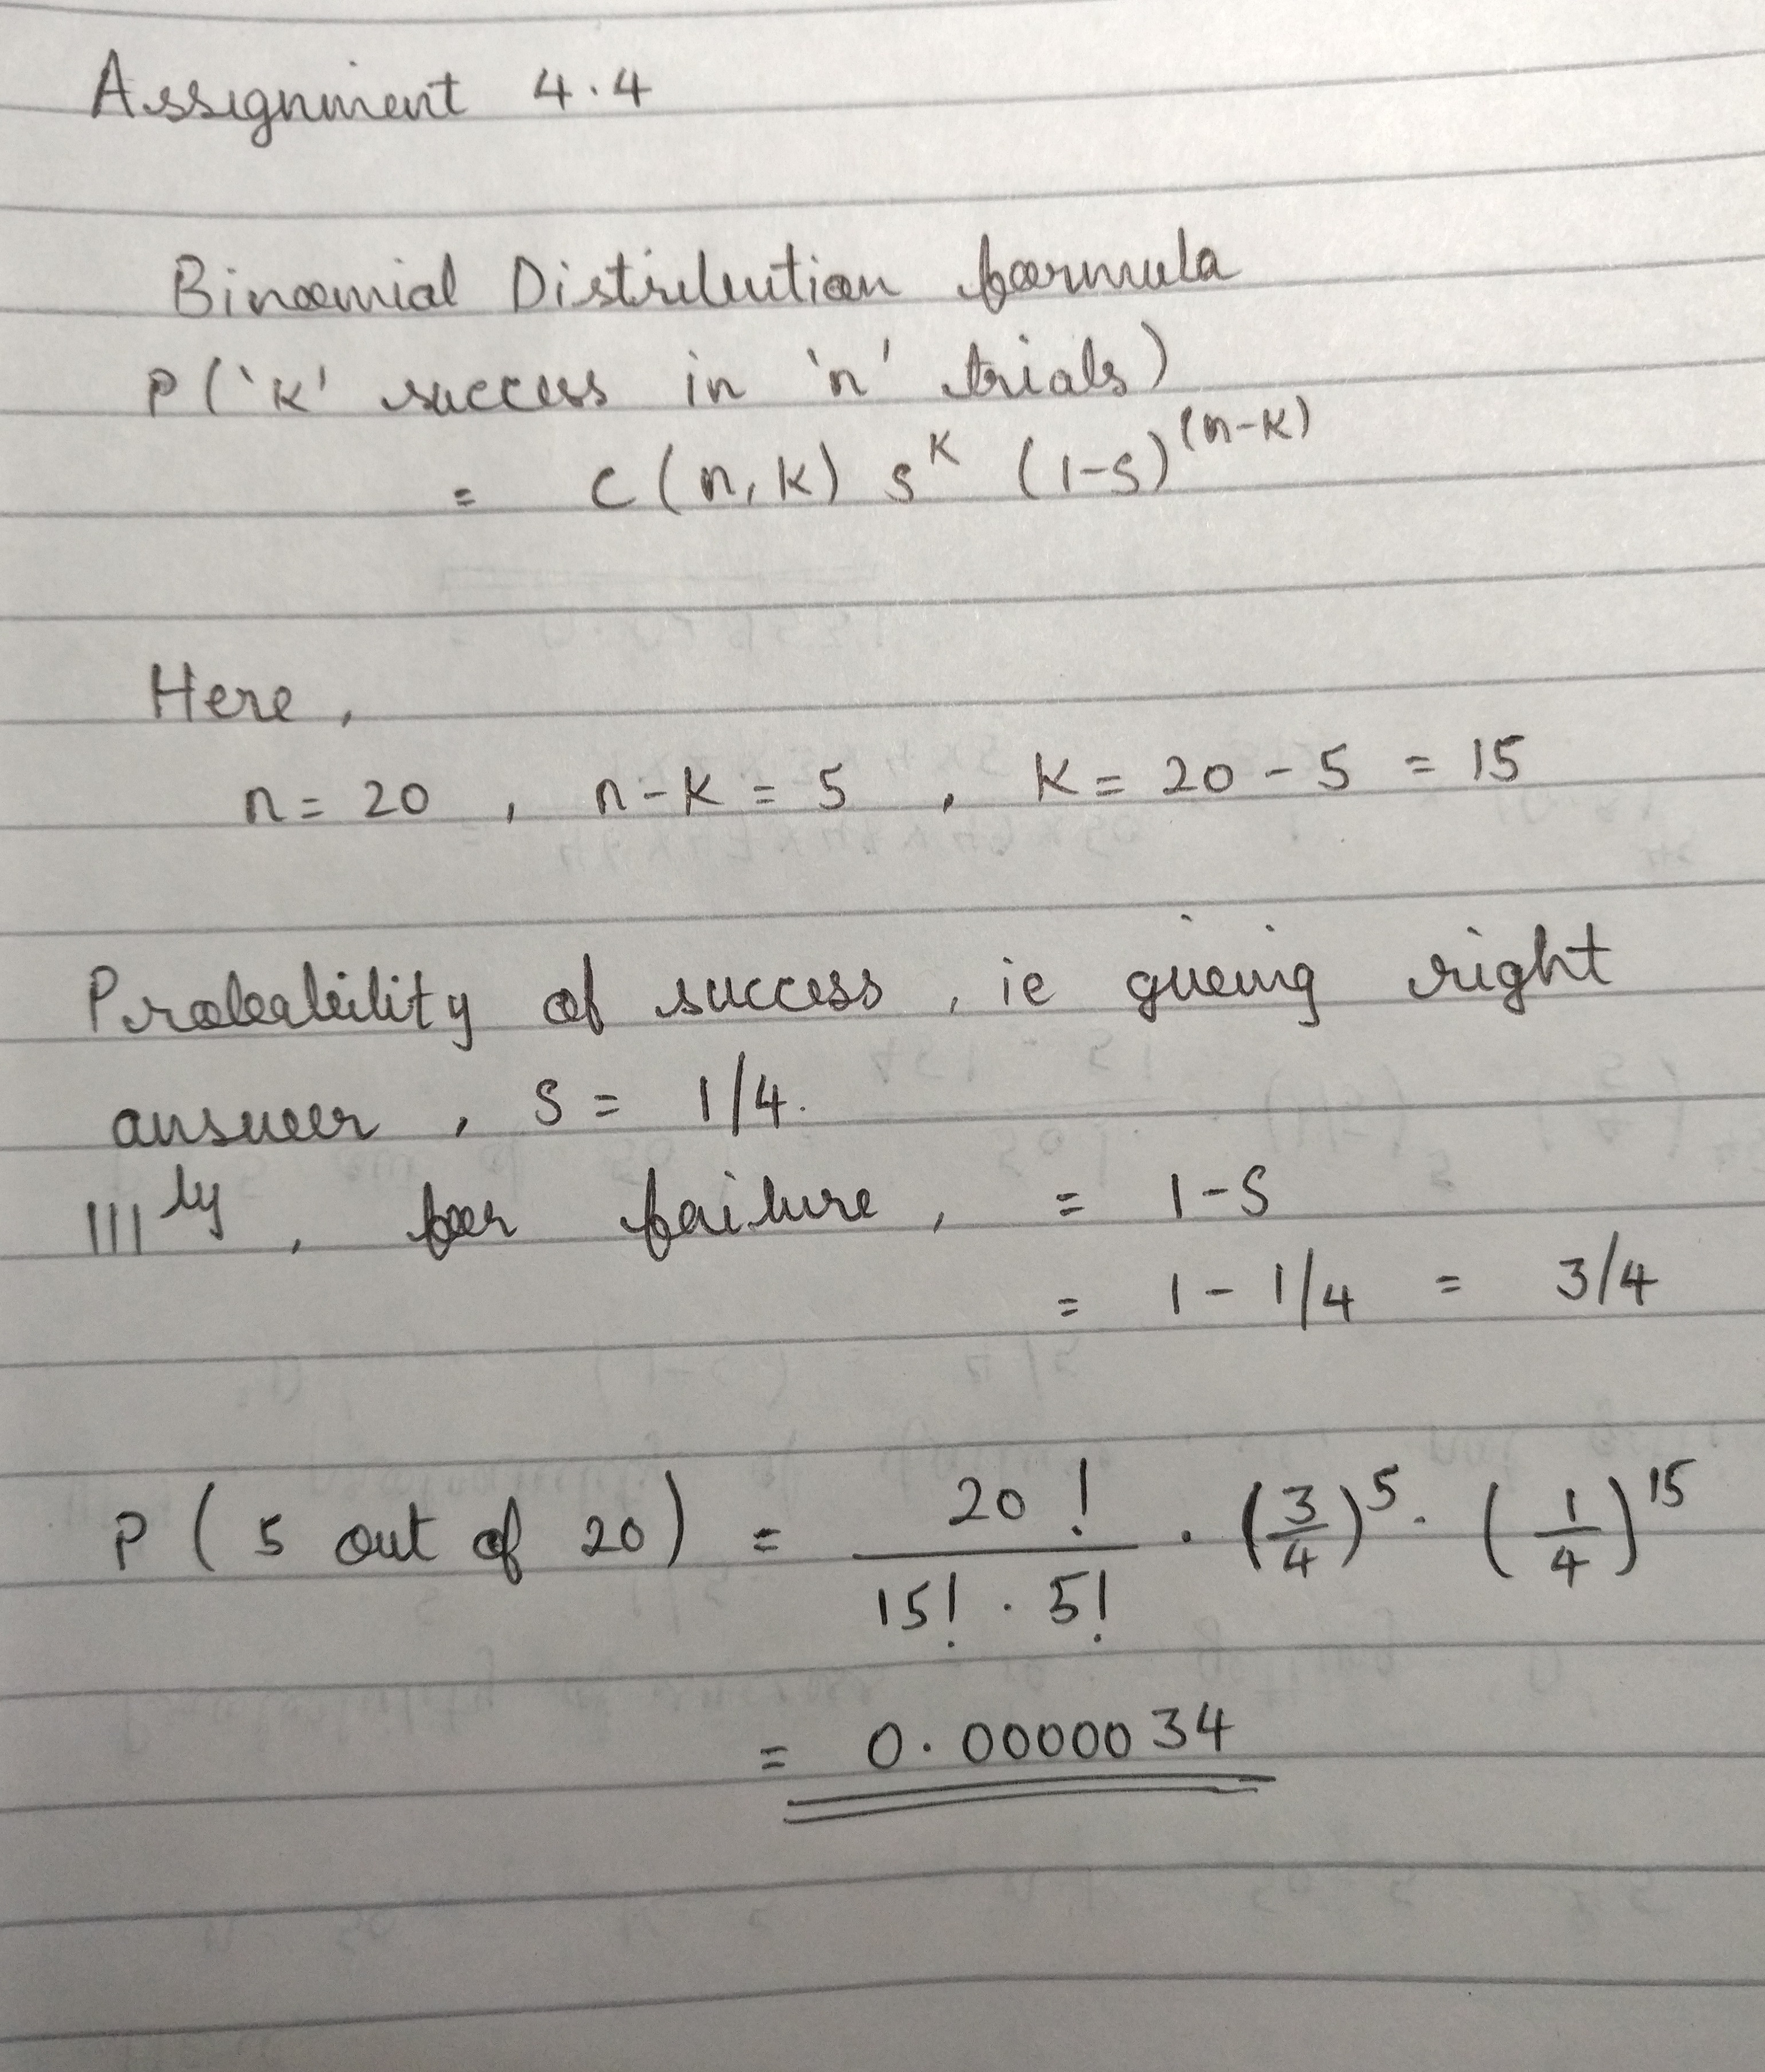 Assignment 4.4
Binomial Distribution formula
P('K' success in 'n' trials)
= C(n,k) s^K (1-S)^(n-K)
Here,
n = 20 , n-K = 5 , K = 20 - 5 = 15
Probability of success, ie giving right
answer , S = 1/4.
|||ly, for failure, = 1-S
= 1 - 1/4 = 3/4
P(5 out of 20) = 20!/(15! . 5!) . (3/4)^5 . (1/4)^15
= 0.0000034